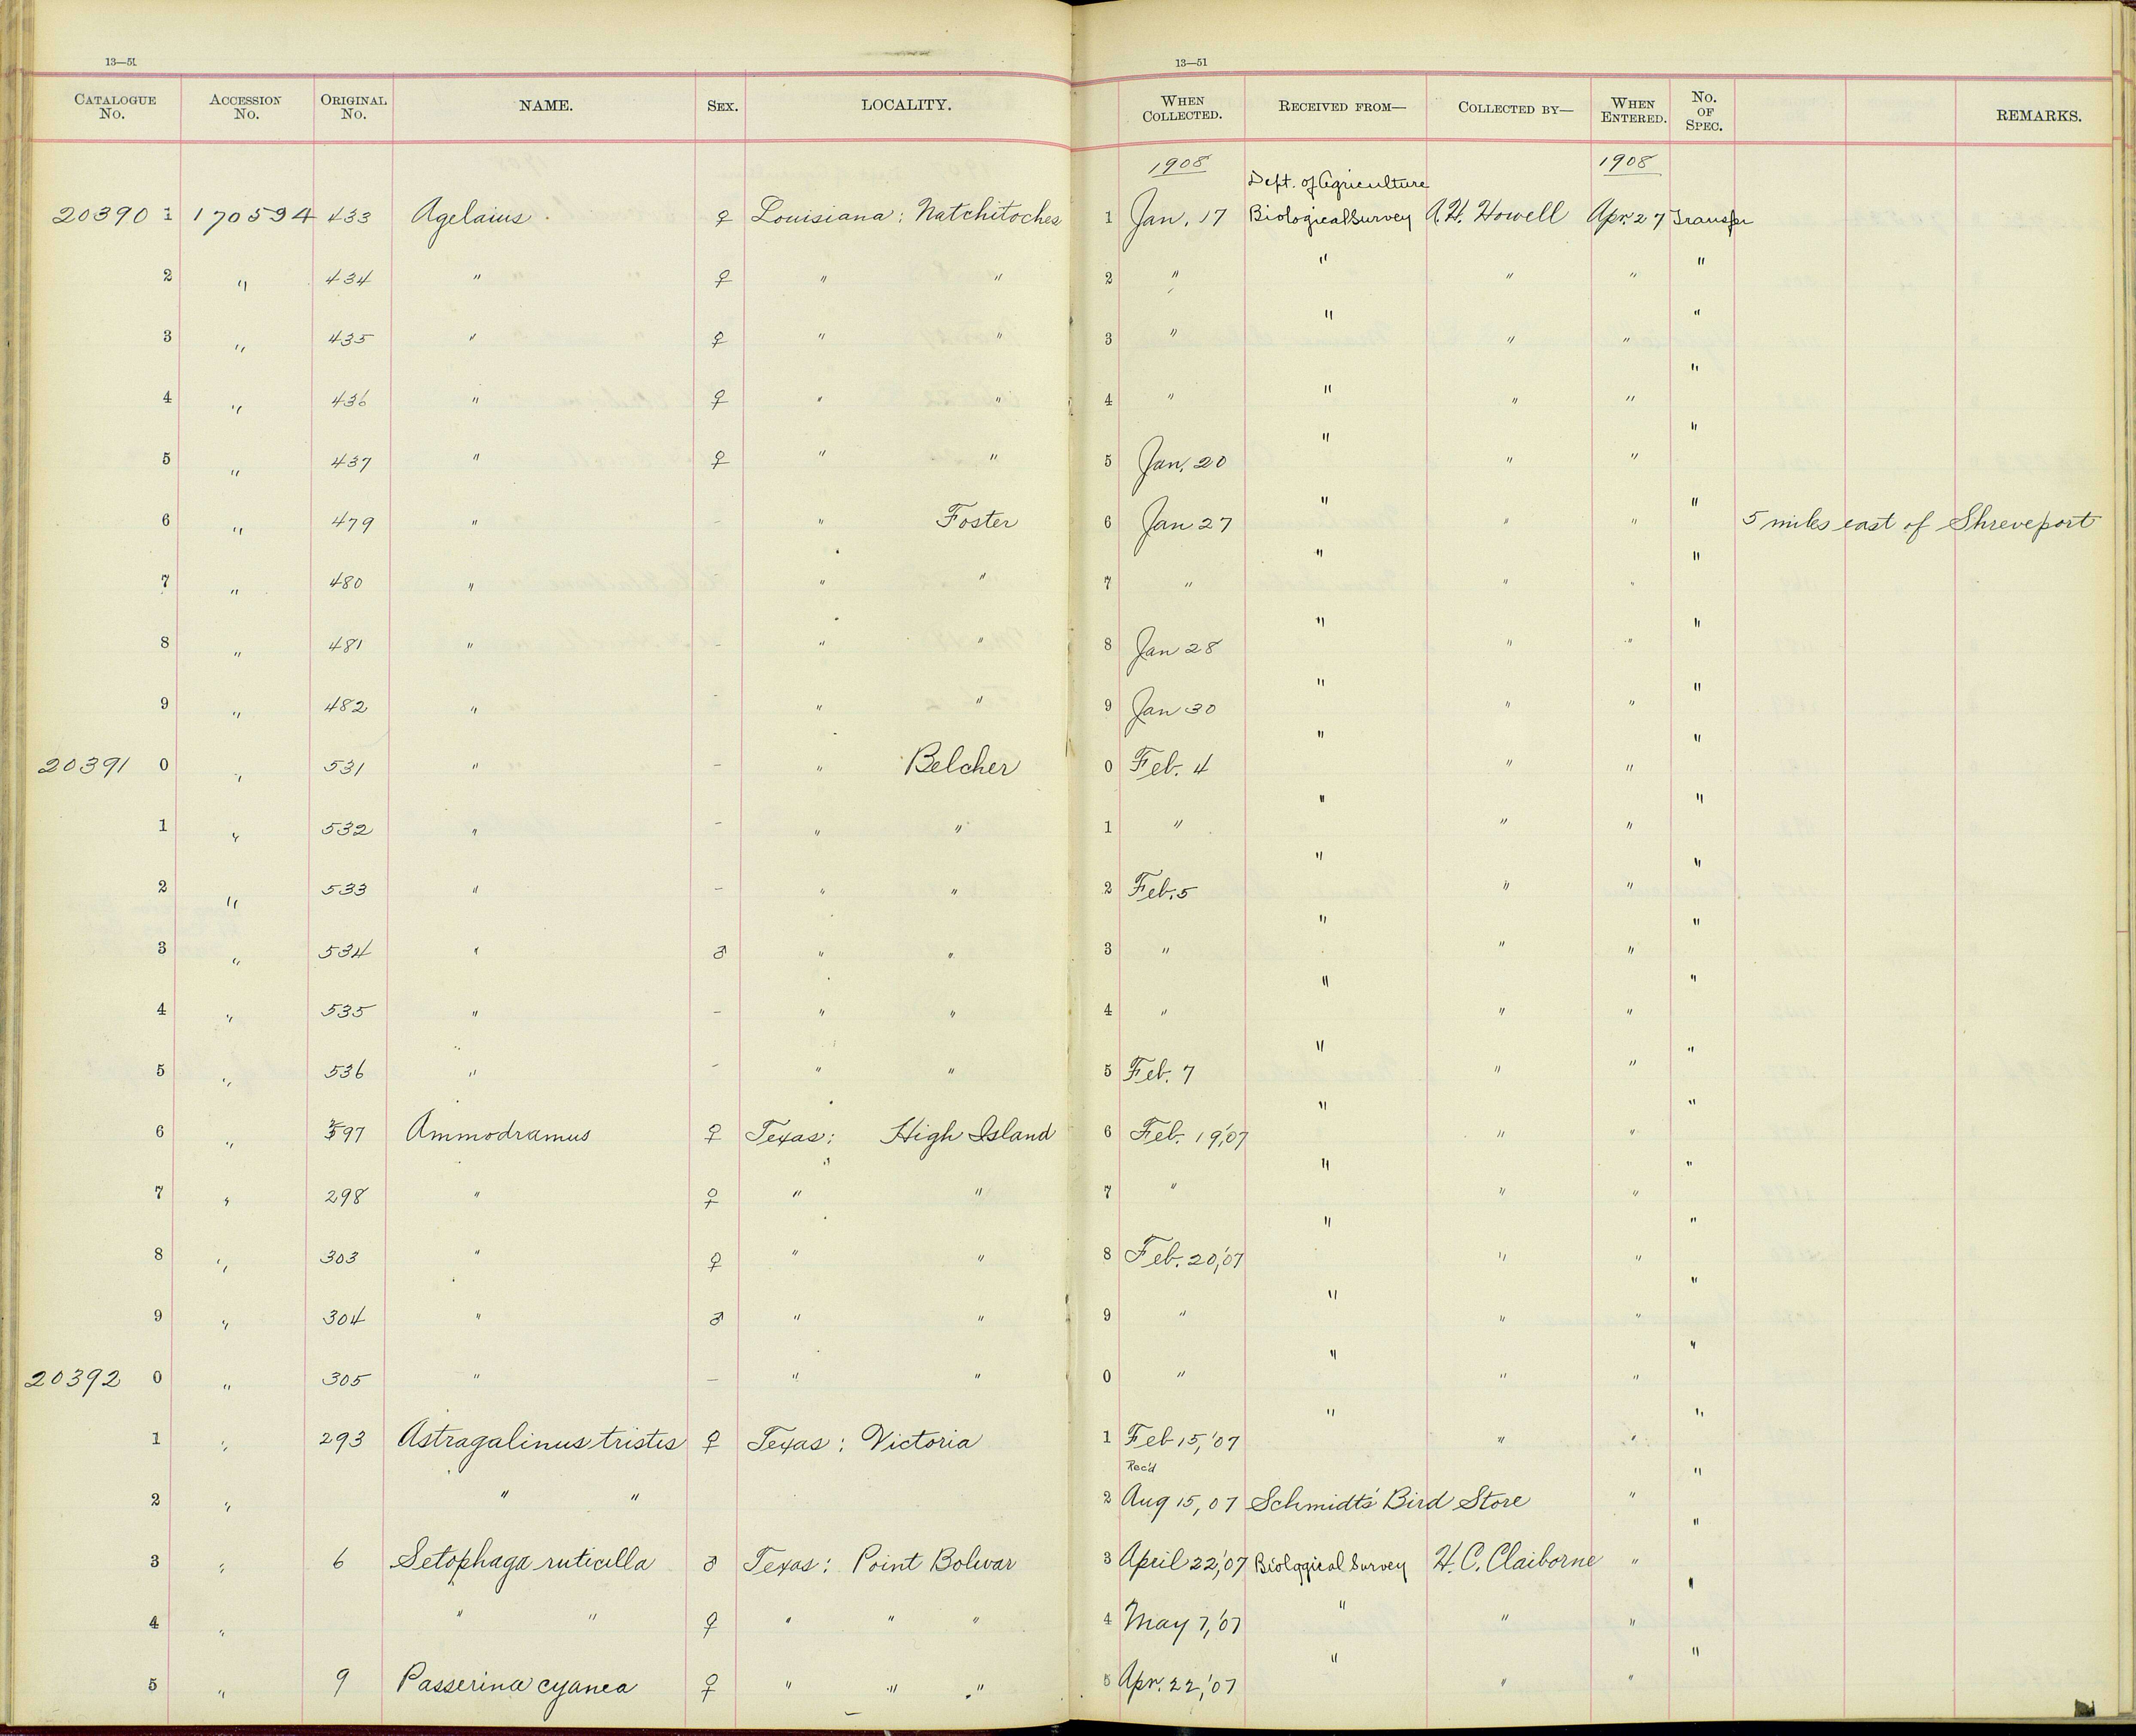 13—51 13—51
CATALOGUE No. ACCESSION No. ORIGINAL No. NAME. SEX. LOCALITY. WHEN COLLECTED. RECEIVED FROM— COLLECTED BY— WHEN ENTERED. No. OF SPEC. REMARKS.
1908 1908
Dept. of Agriculture
20390 1 170594 433 Agelaius. ♀ Louisiana: Natchitoches 1 Jan. 17 Biological Survey A.H. Howell Apr. 27 Transfer
2 " 434 " ♀ " " 2 " " " " "
3 " 435 " ♀ " " 3 " " " " "
4 " 436 " ♀ " " 4 " " " " "
5 " 437 " ♀ " " 5 Jan. 20 " " " "
6 " 479 " – " Foster 6 Jan 27 " " " " 5 miles east of Shreveport
7 " 480 " – " " 7 " " " " "
8 " 481 " – " " 8 Jan 28 " " " "
9 " 482 " – " " 9 Jan 30 " " " "
20391 0 " 531 " – " Belcher 0 Feb. 4 " " " "
1 " 532 " – " " 1 " " " " "
2 " 533 " – " " 2 Feb. 5 " " " "
3 " 534 " ♂ " " 3 " " " " "
4 " 535 " – " " 4 " " " " "
5 " 536 " – " " 5 Feb. 7 " " " "
6 " 97 Ammodramus ♀ Texas: High Island 6 Feb. 19,'07 " " " "
7 " 298 " ♀ " " 7 " " " " "
8 " 303 " ♀ " " 8 Feb. 20,'07 " " " "
9 " 304 " ♂ " " 9 " " " " "
20392 0 " 305 " – " " 0 " " " " "
1 " 293 Astragalinus tristis ♀ Texas: Victoria 1 Feb 15,'07 " " " "
Rec'd
2 " " " 2 Aug 15, 07 Schmidt's Bird Store " "
3 " 6 Setophaga ruticilla ♂ Texas: Point Bolivar 3 April 22,'07 Biological Survey H.C. Claiborne " "
4 " " " ♀ " " " 4 May 7,'07 " " " "
5 " 9 Passerina cyanea ♀ " " " 5 Apr. 22,'07 " " " "